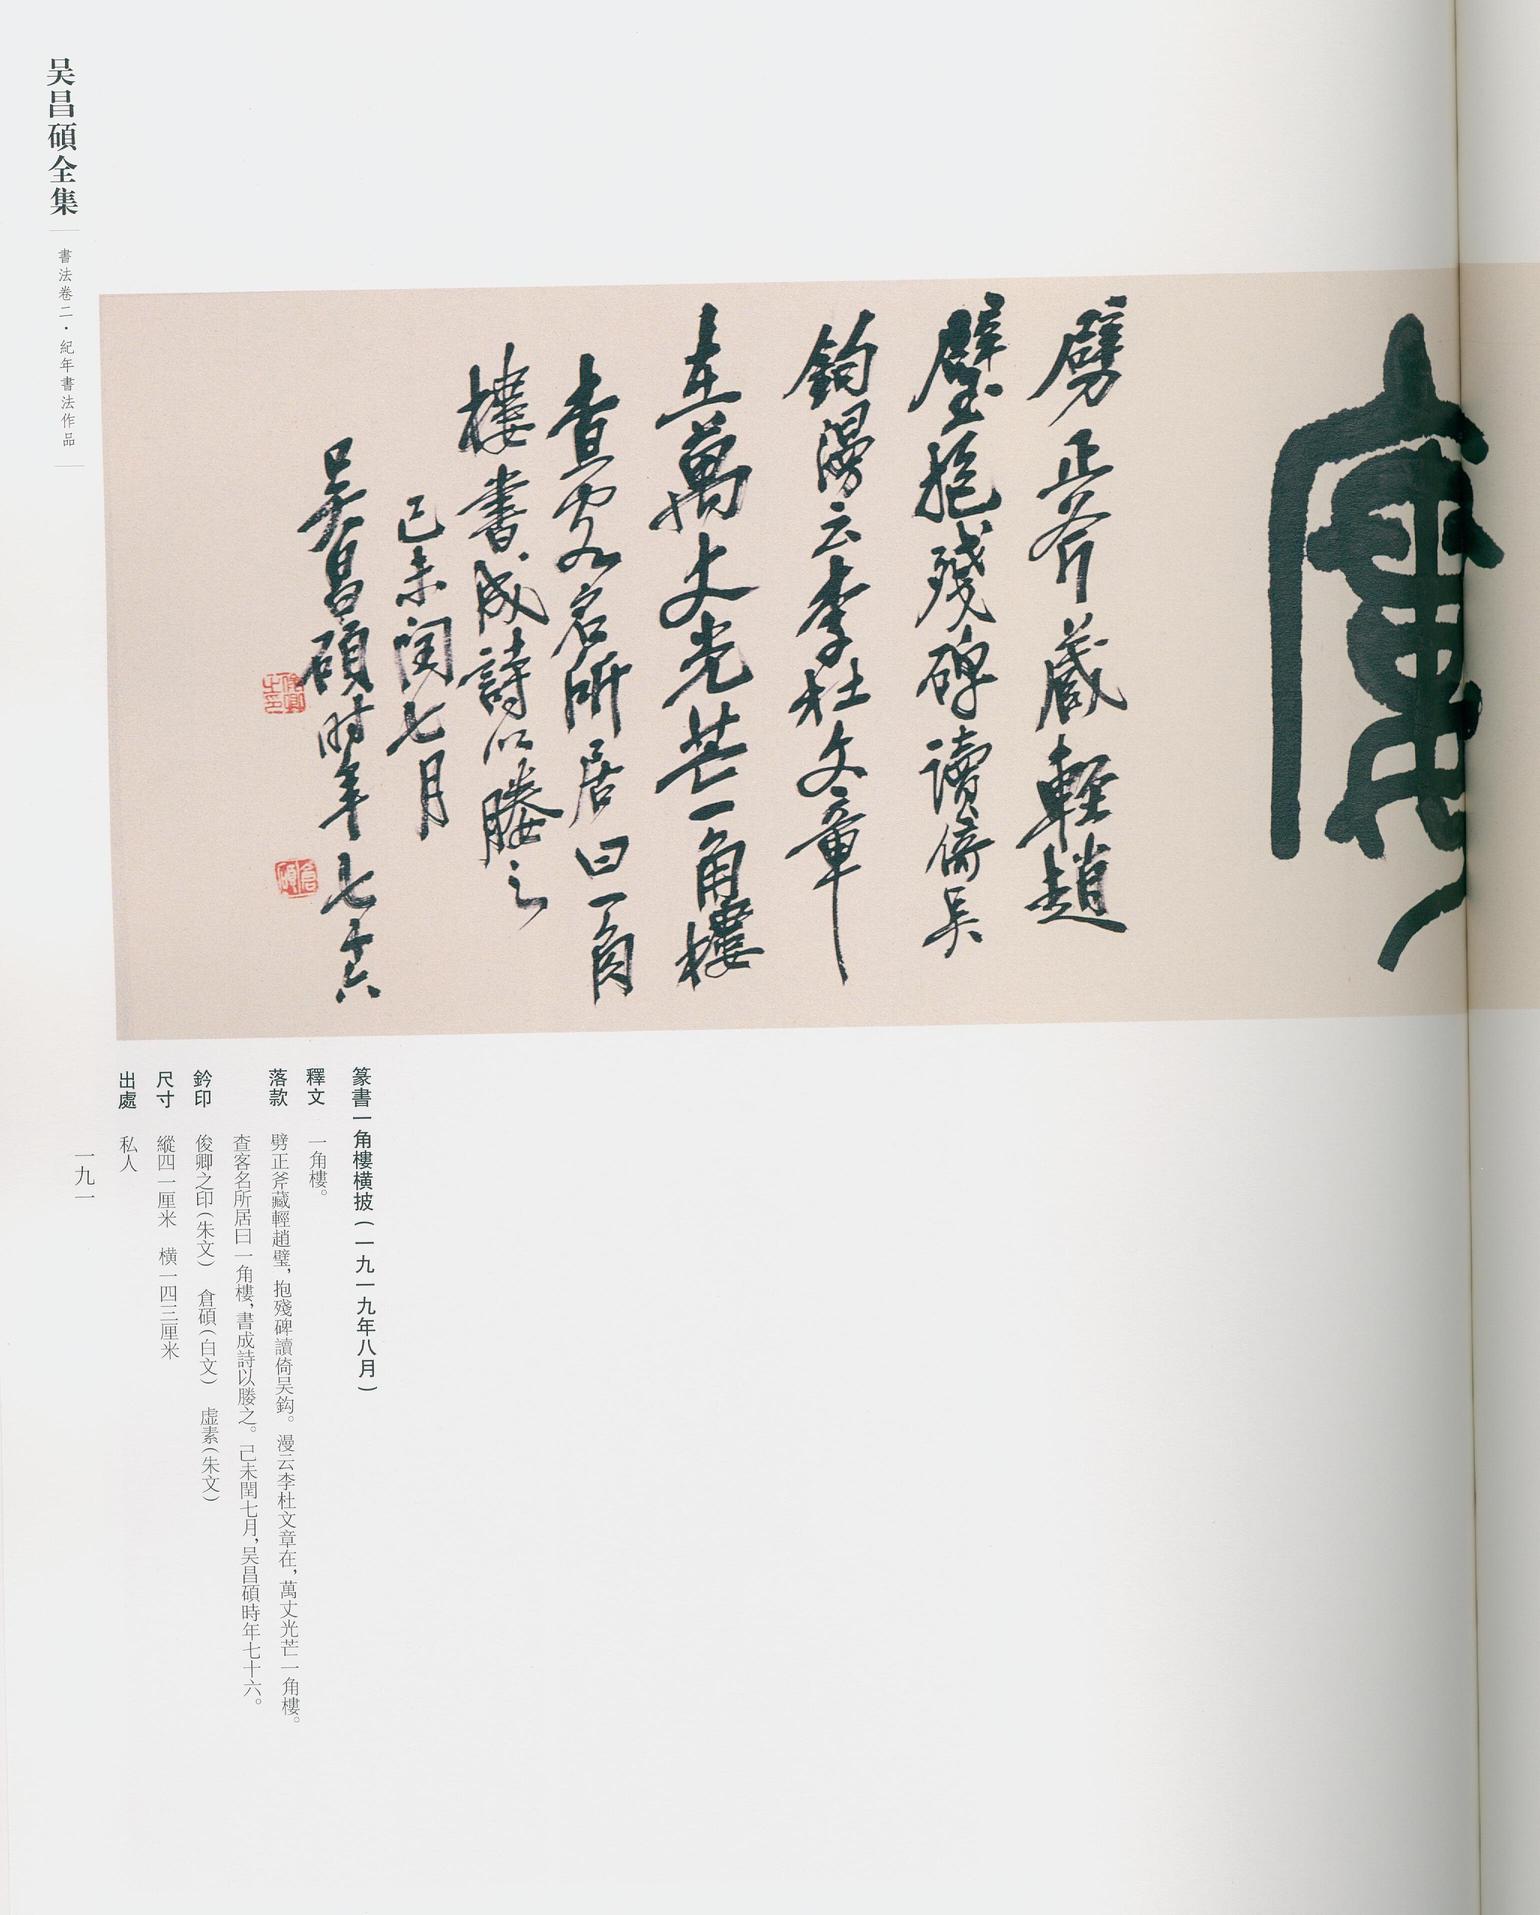 吴昌碩全集
書法卷二·紀年書法作品
劈正斧藏輕趙
璧抱殘碑讀倚吴
鈎漫云李杜文章
在萬丈光芒一角樓
查客名所居曰一角
樓書成詩以媵之
己未閏七月
吴昌碩時年七十六
俊卿之印
倉碩
篆書一角樓横披(一九一九年八月)
釋文 一角樓。
落款 劈正斧藏輕趙璧，抱殘碑讀倚吴鈎。漫云李杜文章在，萬丈光芒一角樓。
查客名所居曰一角樓，書成詩以媵之。己未閏七月，吴昌碩時年七十六。
鈐印 俊卿之印(朱文) 倉碩(白文) 虚素(朱文)
尺寸 縱四一厘米 横一四三厘米
出處 私人
一九一